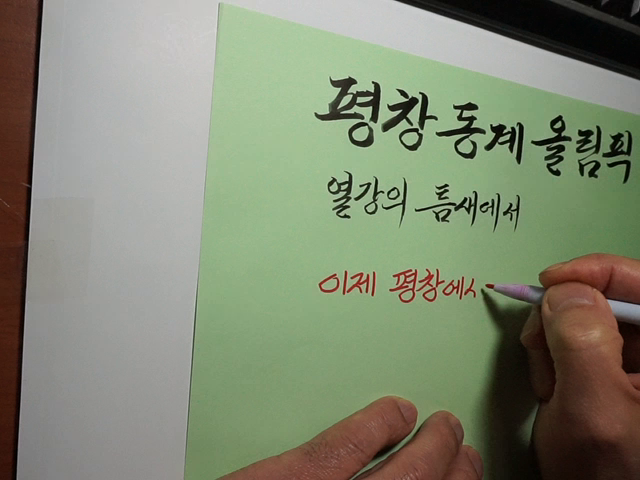 평창 동계 올림픽
열강의 틈새에서
이제 평창에ㅅ